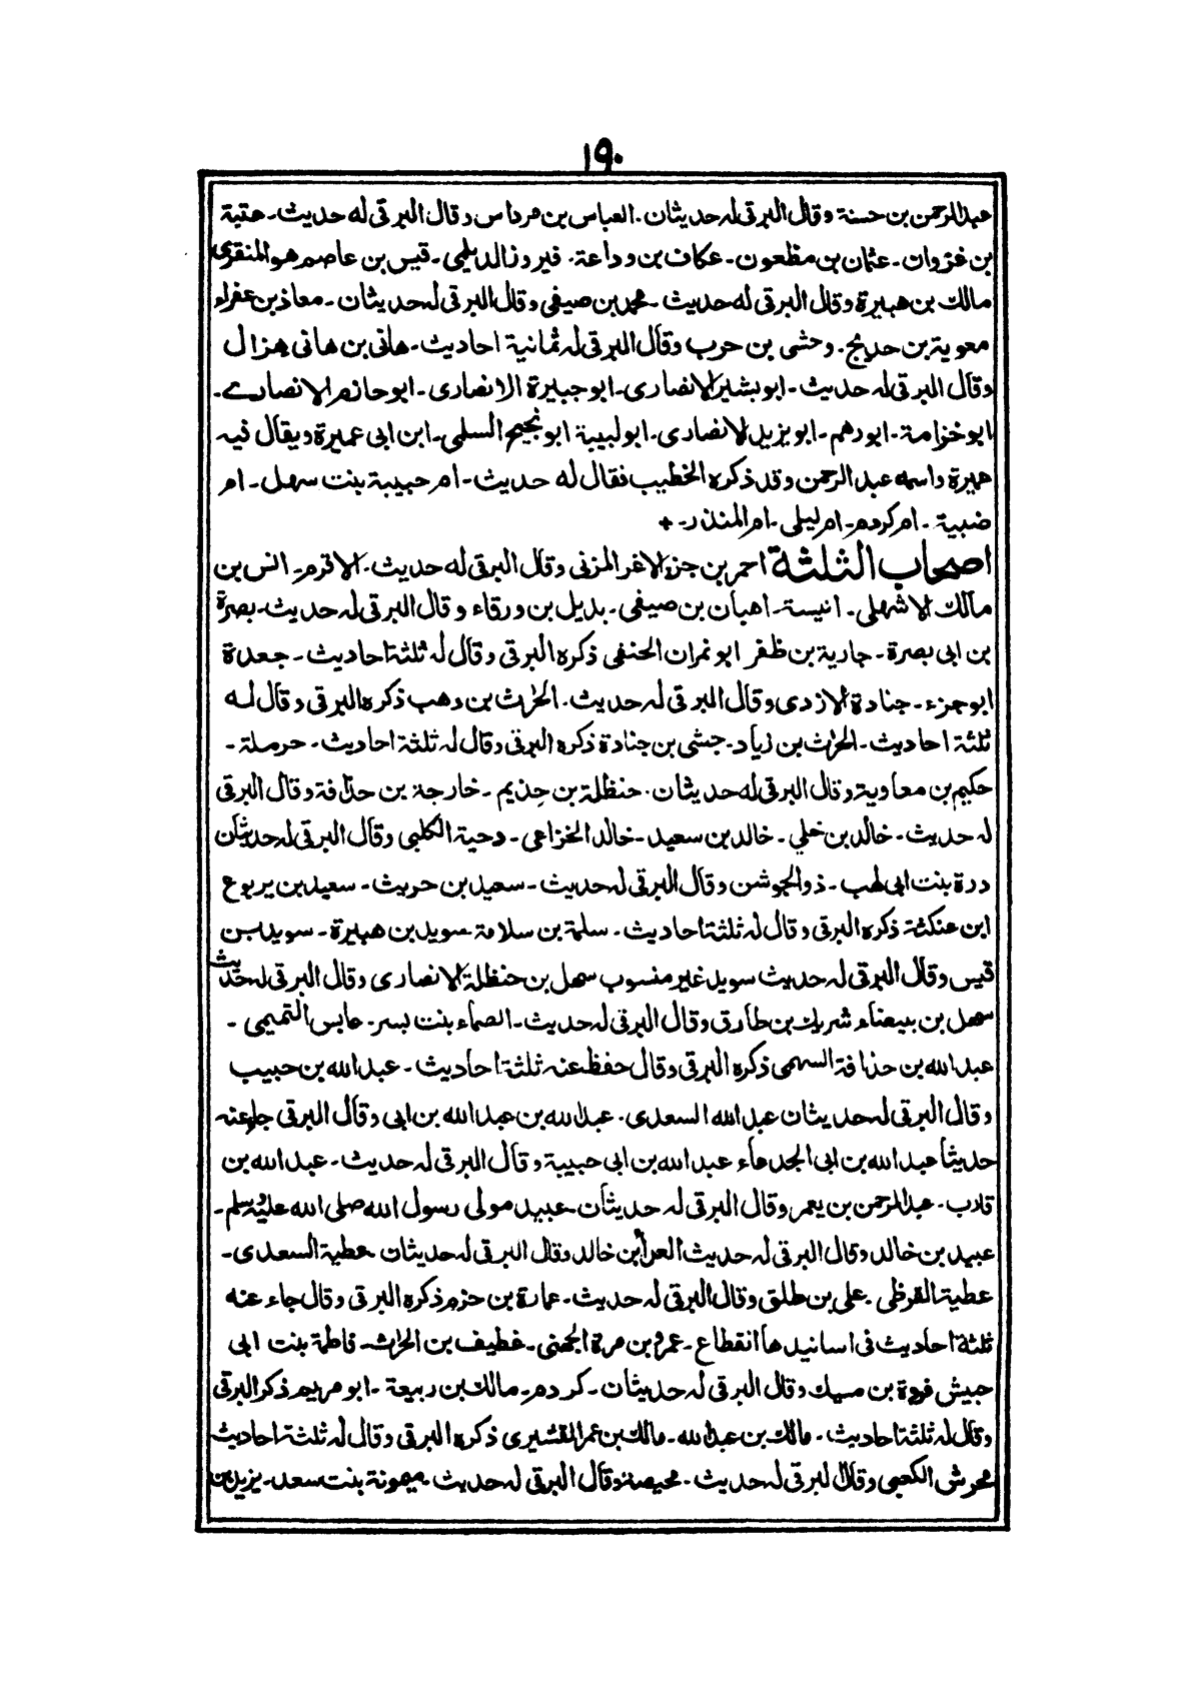 ١٩٠
عبدالرحمن بن حسنة وقال البرقى له حديثان۔ العباس بن مرداس وقال البرقى له حديث۔ عتبة
بن غزوان۔ عثمان بن مظعون۔ عكاف بن وداعة۔ فيروز الديلمى۔ قيس بن عاصم هو المنقرى
مالك بن هبيرة وقال البرقى له حديث۔ محمد بن صيفى وقال البرقى له حديثان۔ معاذ بن عفراء
معوية بن حديج۔ وحشى بن حرب وقال البرقى له ثمانية احاديث۔ هانى بن هانى هزال
وقال البرقى له حديث۔ ابو بشير الانصارى۔ ابو جبيرة الانصارى۔ ابو حازم الانصارے۔
ابو خزامة۔ ابو رهم۔ ابو يزيد الانصارى۔ ابو لبيبة ابو نجيح السلمى۔ ابن ابى عميرة ويقال فيه
هبيرة واسمه عبد الرحمن وقد ذكره الخطيب فقال له حديث۔ ام حبيبة بنت سهل۔ ام
ضبية۔ ام كردم۔ ام ليلى۔ ام المنذر۔ +
اصحاب الثلثة احمر بن جزء الاغر المزنى وقال البرقى له حديث۔ الاقرم۔ انس بن
مالك الاشهلى۔ انيسة۔ اهبان بن صيفى۔ بديل بن ورقاء وقال البرقى له حديث۔ بصرة
بن ابى بصرة۔ جارية بن ظفر ابو نمران الحنفى ذكره البرقى وقال له ثلثة احاديث۔ جعدة
ابو جزء۔ جنادة الازدى وقال البرقى له حديث۔ الحرث بن وهب ذكره البرقى وقال له
ثلثة احاديث۔ الحرث بن زياد۔ حبشى بن جنادة ذكره البرقى وقال له ثلثة احاديث۔ حرملة۔
حكيم بن معاوية وقال البرقى له حديثان۔ حنظلة بن حذيم۔ خارجة بن حذافة وقال البرقى
له حديث۔ خالد بن عدي۔ خالد بن سعيد۔ خالد الخزاعى۔ دحية الكلبى وقال البرقى له حديثان
درة بنت ابى لهب۔ ذو الجوشن وقال البرقى له حديث۔ سعيد بن حريث۔ سعيد بن يربوع
ابن عنكثة ذكره البرقى وقال له ثلثة احاديث۔ سلمة بن سلامة سويد بن هبيرة۔ سويد بن
قيس وقال البرقى له حديث سويد غير منسوب سهل بن حنظلة الانصارى وقال البرقى له حديث
سهل بن بيضاء شريك بن طارق وقال البرقى له حديث۔ الصماء بنت بسر۔ عابس التميمى۔
عبدالله بن حذافة السهمى ذكره البرقى وقال حفظ عنه ثلثة احاديث۔ عبد الله بن حبيب
وقال البرقى له حديثان عبد الله السعدى۔ عبد الله بن عبد الله بن ابى وقال البرقى جاء عنه
حديثا عبد الله بن ابى الجدعاء عبد الله بن ابى حبيبة وقال البرقى له حديث۔ عبد الله بن
قارب۔ عبد الرحمن بن يعمر وقال البرقى له حديثان۔ عبيد مولى رسول الله صلى الله عليه وسلم۔
عبيد بن خالد وقال البرقى له حديث العداء بن خالد وقال البرقى له حديثان عطية السعدى۔
عطية القرظى۔ على بن طلق وقال البرقى له حديث۔ عمارة بن حزم ذكره البرقى وقال جاء عنه
ثلثة احاديث فى اسانيدها انقطاع۔ عمرو بن مرة الجهنى۔ غطيف بن الحرث۔ فاطمة بنت ابى
حبيش فروة بن مسيك وقال البرقى له حديثان۔ كردم۔ مالك بن ربيعة۔ ابو مريم ذكر البرقى
وقال له ثلثة احاديث۔ مالك بن عبد الله۔ مالك بن عمر القشيرى ذكره البرقى وقال له ثلثة احاديث
محرش الكعبى وقال البرقى له حديث۔ محيصة وقال البرقى له حديث۔ ميمونة بنت سعد۔ يزيد بن